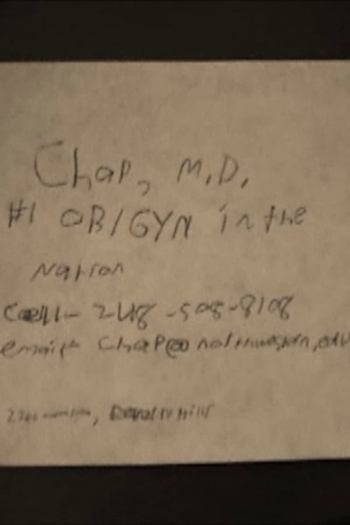 Chap, M.D,
#1 OB/GYN in the
Nation
Cell- 248-508-8108
email Chap@